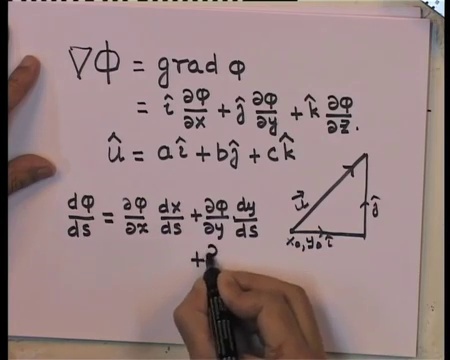 ∇Φ = grad φ
= î ∂φ/∂x + ĵ ∂φ/∂y + k̂ ∂φ/∂z.
û = aî + bĵ + ck̂
dφ/ds = ∂φ/∂x dx/ds + ∂φ/∂y dy/ds
+∂
u⃗
ĵ
x₀, y₀ î